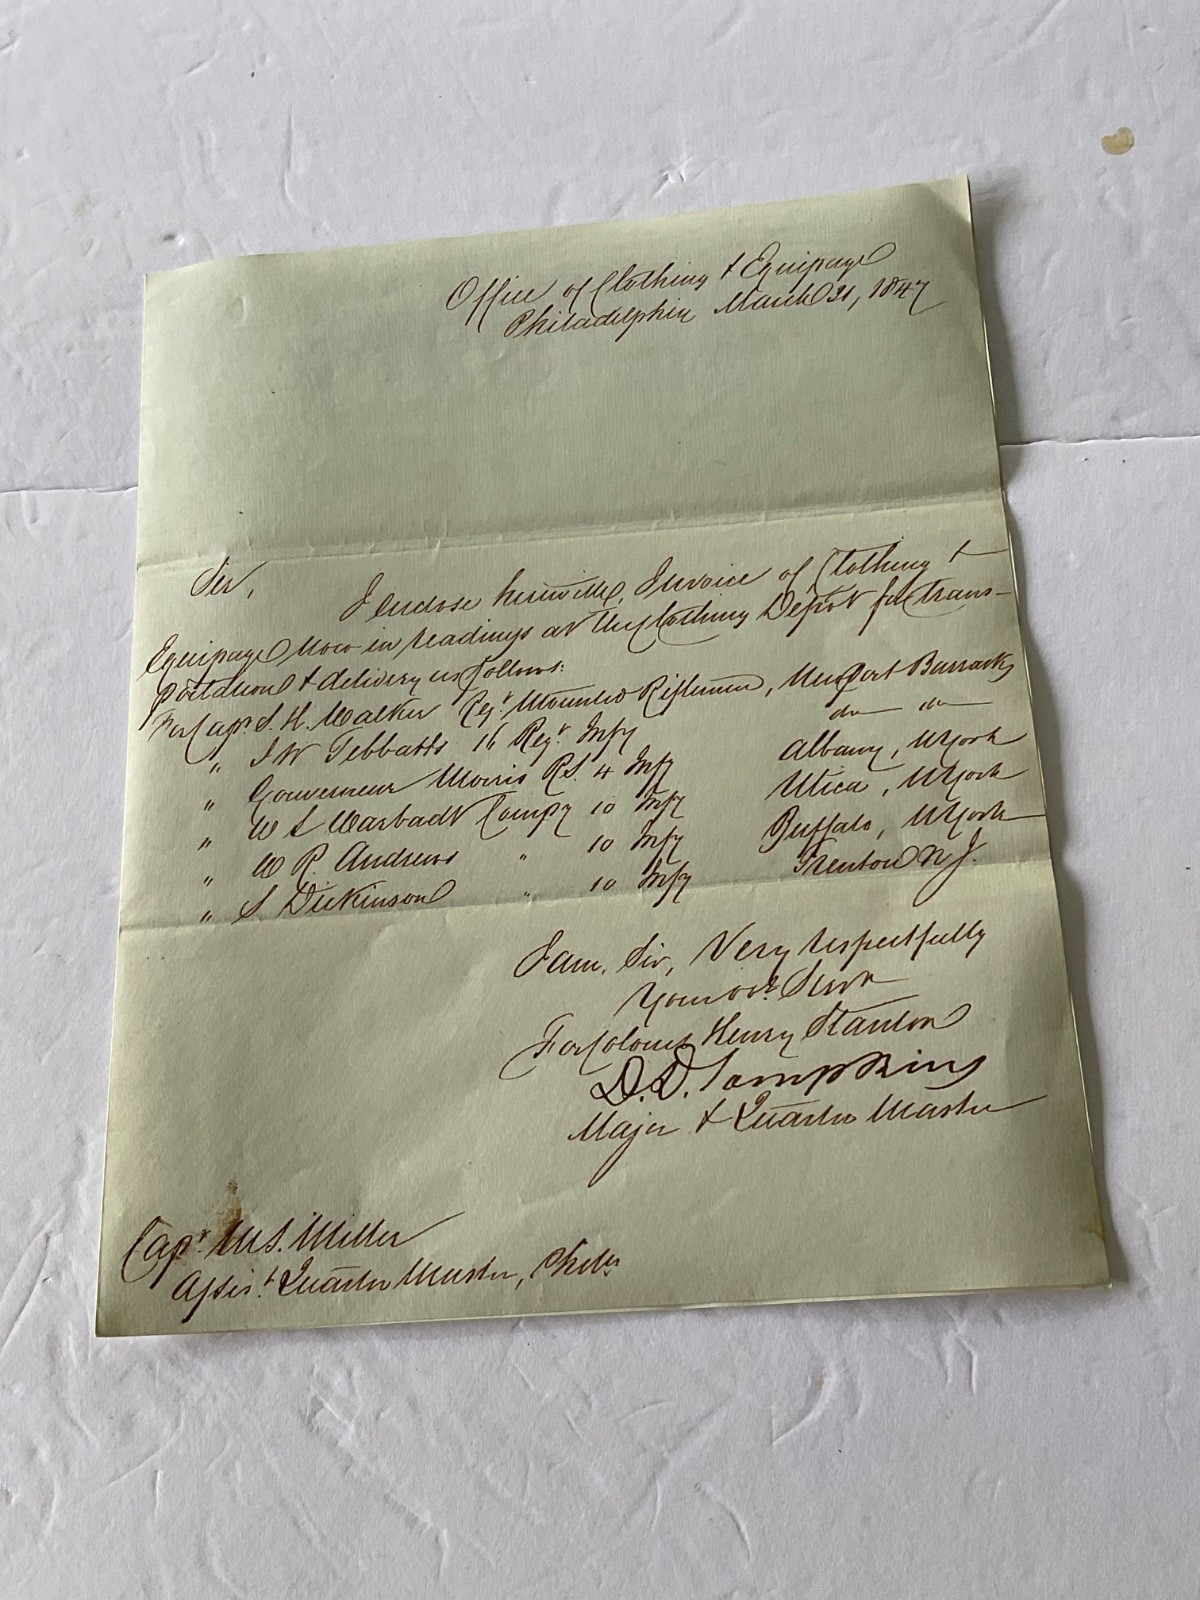 Office of Clothing & Equipage
Philadelphia March 31, 1847
Sir,
I enclose herewith, Invoice of Clothing &
Equipage now in readings at the Clothing Depôt for trans-
portation & delivery as follows:
For Capt. S. H. Walker Regt. Mounted Riflemen, Newport Barracks
" J W Tebbatts 16 Regt Infy do do
" Gouverneur Morris R.S. 4 Infy Albany, N York
" W S Compy 10 Infy Utica, N York
" W R. Andrews " 10 Infy Buffalo, N York
" S Dickinson " 10 Infy Trenton N J.
I am, Sir, Very respectfully
Your obt. Servt
For Colonel Henry Stanton
D. D. Tompkins
Major & Quarter Master
Capt. M S. Miller
Assist. Quarter Master, Phila